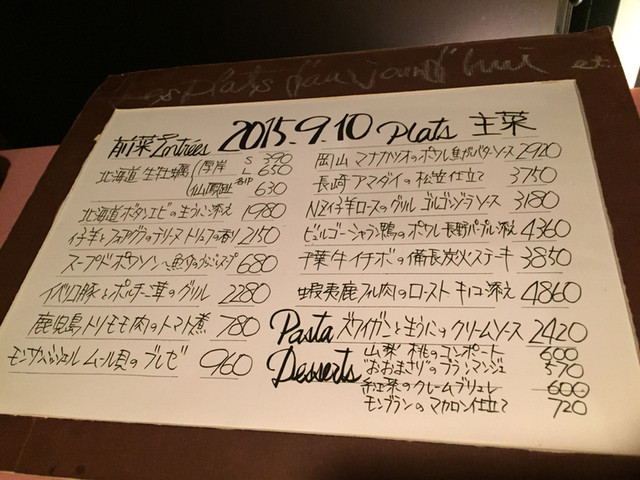 Les plats d'aujourd'hui etc..
前菜 Entrées 2015.9.10 Plats 主菜
北海道 生牡蠣 厚岸 S 390
L 650
仙鳳趾 630
北海道ボタンエビの生うに添え 1980
仔羊とフォアグラのテリーヌ トリュフの香り 2150
スープドポワソン 680
イベリコ豚とポルチーニ茸のグリル 2280
鹿児島トリモモ肉のトマト煮 780
モンサンミッシェル ムール貝のブレゼ 960
岡山 マナガツオのポワレ 焦がしバターソース 2920
長崎 アマダイの松笠仕立て 3750
NZ仔羊ロースのグリル ゴルゴンゾーラソース 3180
ビュルゴー シャラン鴨のポワレ 長野パープル添え 4360
千葉牛イチボの備長炭火ステーキ 3850
蝦夷鹿フィレ肉のロースト キノコ添え 4860
Pasta ズワイガニと生うにのクリームソース 2420
Desserts 山梨 桃のコンポート 600
"おおまさり"のブランマンジェ 570
紅茶のクレームブリュレ 600
モンブランのマカロン仕立て 720